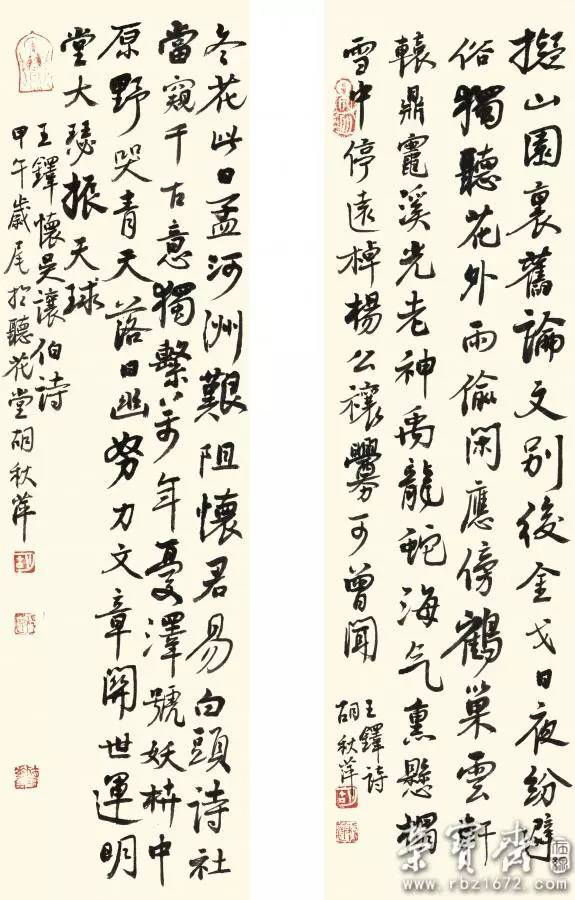 擬山園裏舊論文別後金戈日夜紛避
俗獨聽花外雨偷閑應傍鶴巢雲軒
轅鼎竈溪光老神禹龍蛇海气熏懸榻
雪中停遠棹楊公禳釁可曾聞
王鐸詩
胡秋萍
冬花此日孟河洲艱阻懷君易白頭詩社
當窺千古意獨繫年憂澤號妖中
原野哭青天落日幽努力文章開世運明
堂大瑟振天球
王鐸懷吳讓伯詩
甲午歲尾於聽花堂胡秋萍
榮寶齋
www.rbz1672.com